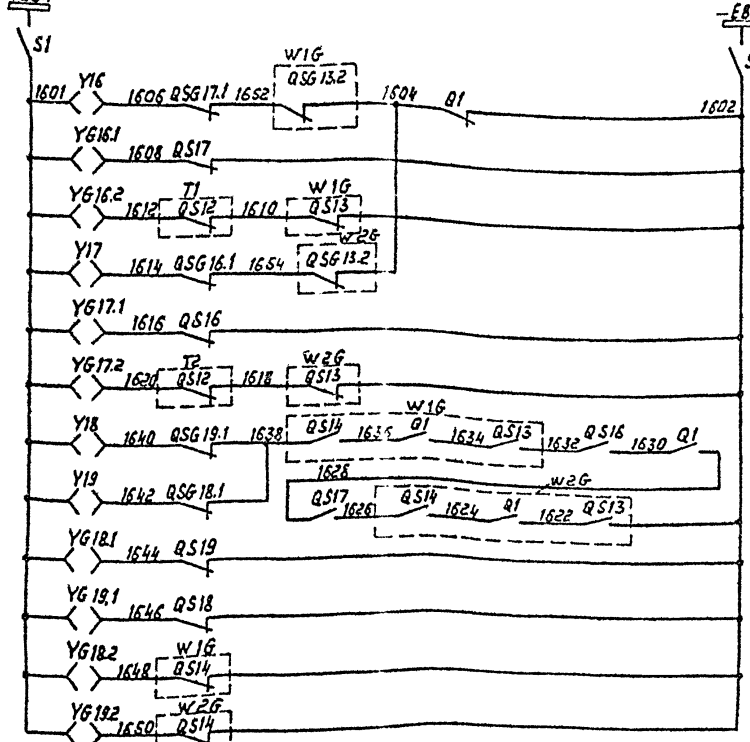 -EB
S1
S
W1G
1601 Y16 1606 QSG17.1 1652 QSG13.2 1604 Q1 1602
YG16.1 1608 QS17
T1 W1G
YG16.2 1612 QS12 1610 QS13
W2G
Y17 1614 QSG16.1 1654 QSG13.2
YG17.1 1616 QS16
T2 W2G
YG17.2 1620 QS12 1618 QS13
W1G
Y18 1640 QSG19.1 1638 QS14 1636 Q1 1634 QS13 1632 QS16 1630 Q1
1628 W2G
Y19 1642 QSG18.1 QS17 1626 QS14 1624 Q1 1622 QS13
YG18.1 1644 QS19
YG19.1 1646 QS18
W1G
YG18.2 1648 QS14
W2G
YG19.2 1650 QS14